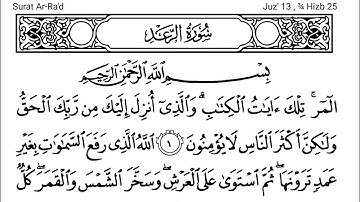 Surat Ar-Ra'd Juz' 13 , ¾ Hizb 25
سُورَةُ الرَّعْدِ
بِسْمِ اللَّهِ الرَّحْمَٰنِ الرَّحِيمِ
الٓمٓرۚ تِلْكَ ءَايَٰتُ الْكِتَٰبِۗ وَالَّذِىٓ أُنزِلَ إِلَيْكَ مِن رَّبِّكَ الْحَقُّ
وَلَٰكِنَّ أَكْثَرَ النَّاسِ لَا يُؤْمِنُونَ ١ اللَّهُ الَّذِى رَفَعَ السَّمَٰوَٰتِ بِغَيْرِ
عَمَدٍ تَرَوْنَهَاۖ ثُمَّ اسْتَوَىٰ عَلَى الْعَرْشِۖ وَسَخَّرَ الشَّمْسَ وَالْقَمَرَۖ كُلٌّ